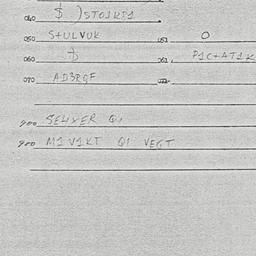 040 $ )STO1KP1
050 S+ULVUK 051 O
060 $ 061 P1C+AT1K
070 AD3RQF
900 SEHXER Q1
900 M1V1KT Q1 VEGT